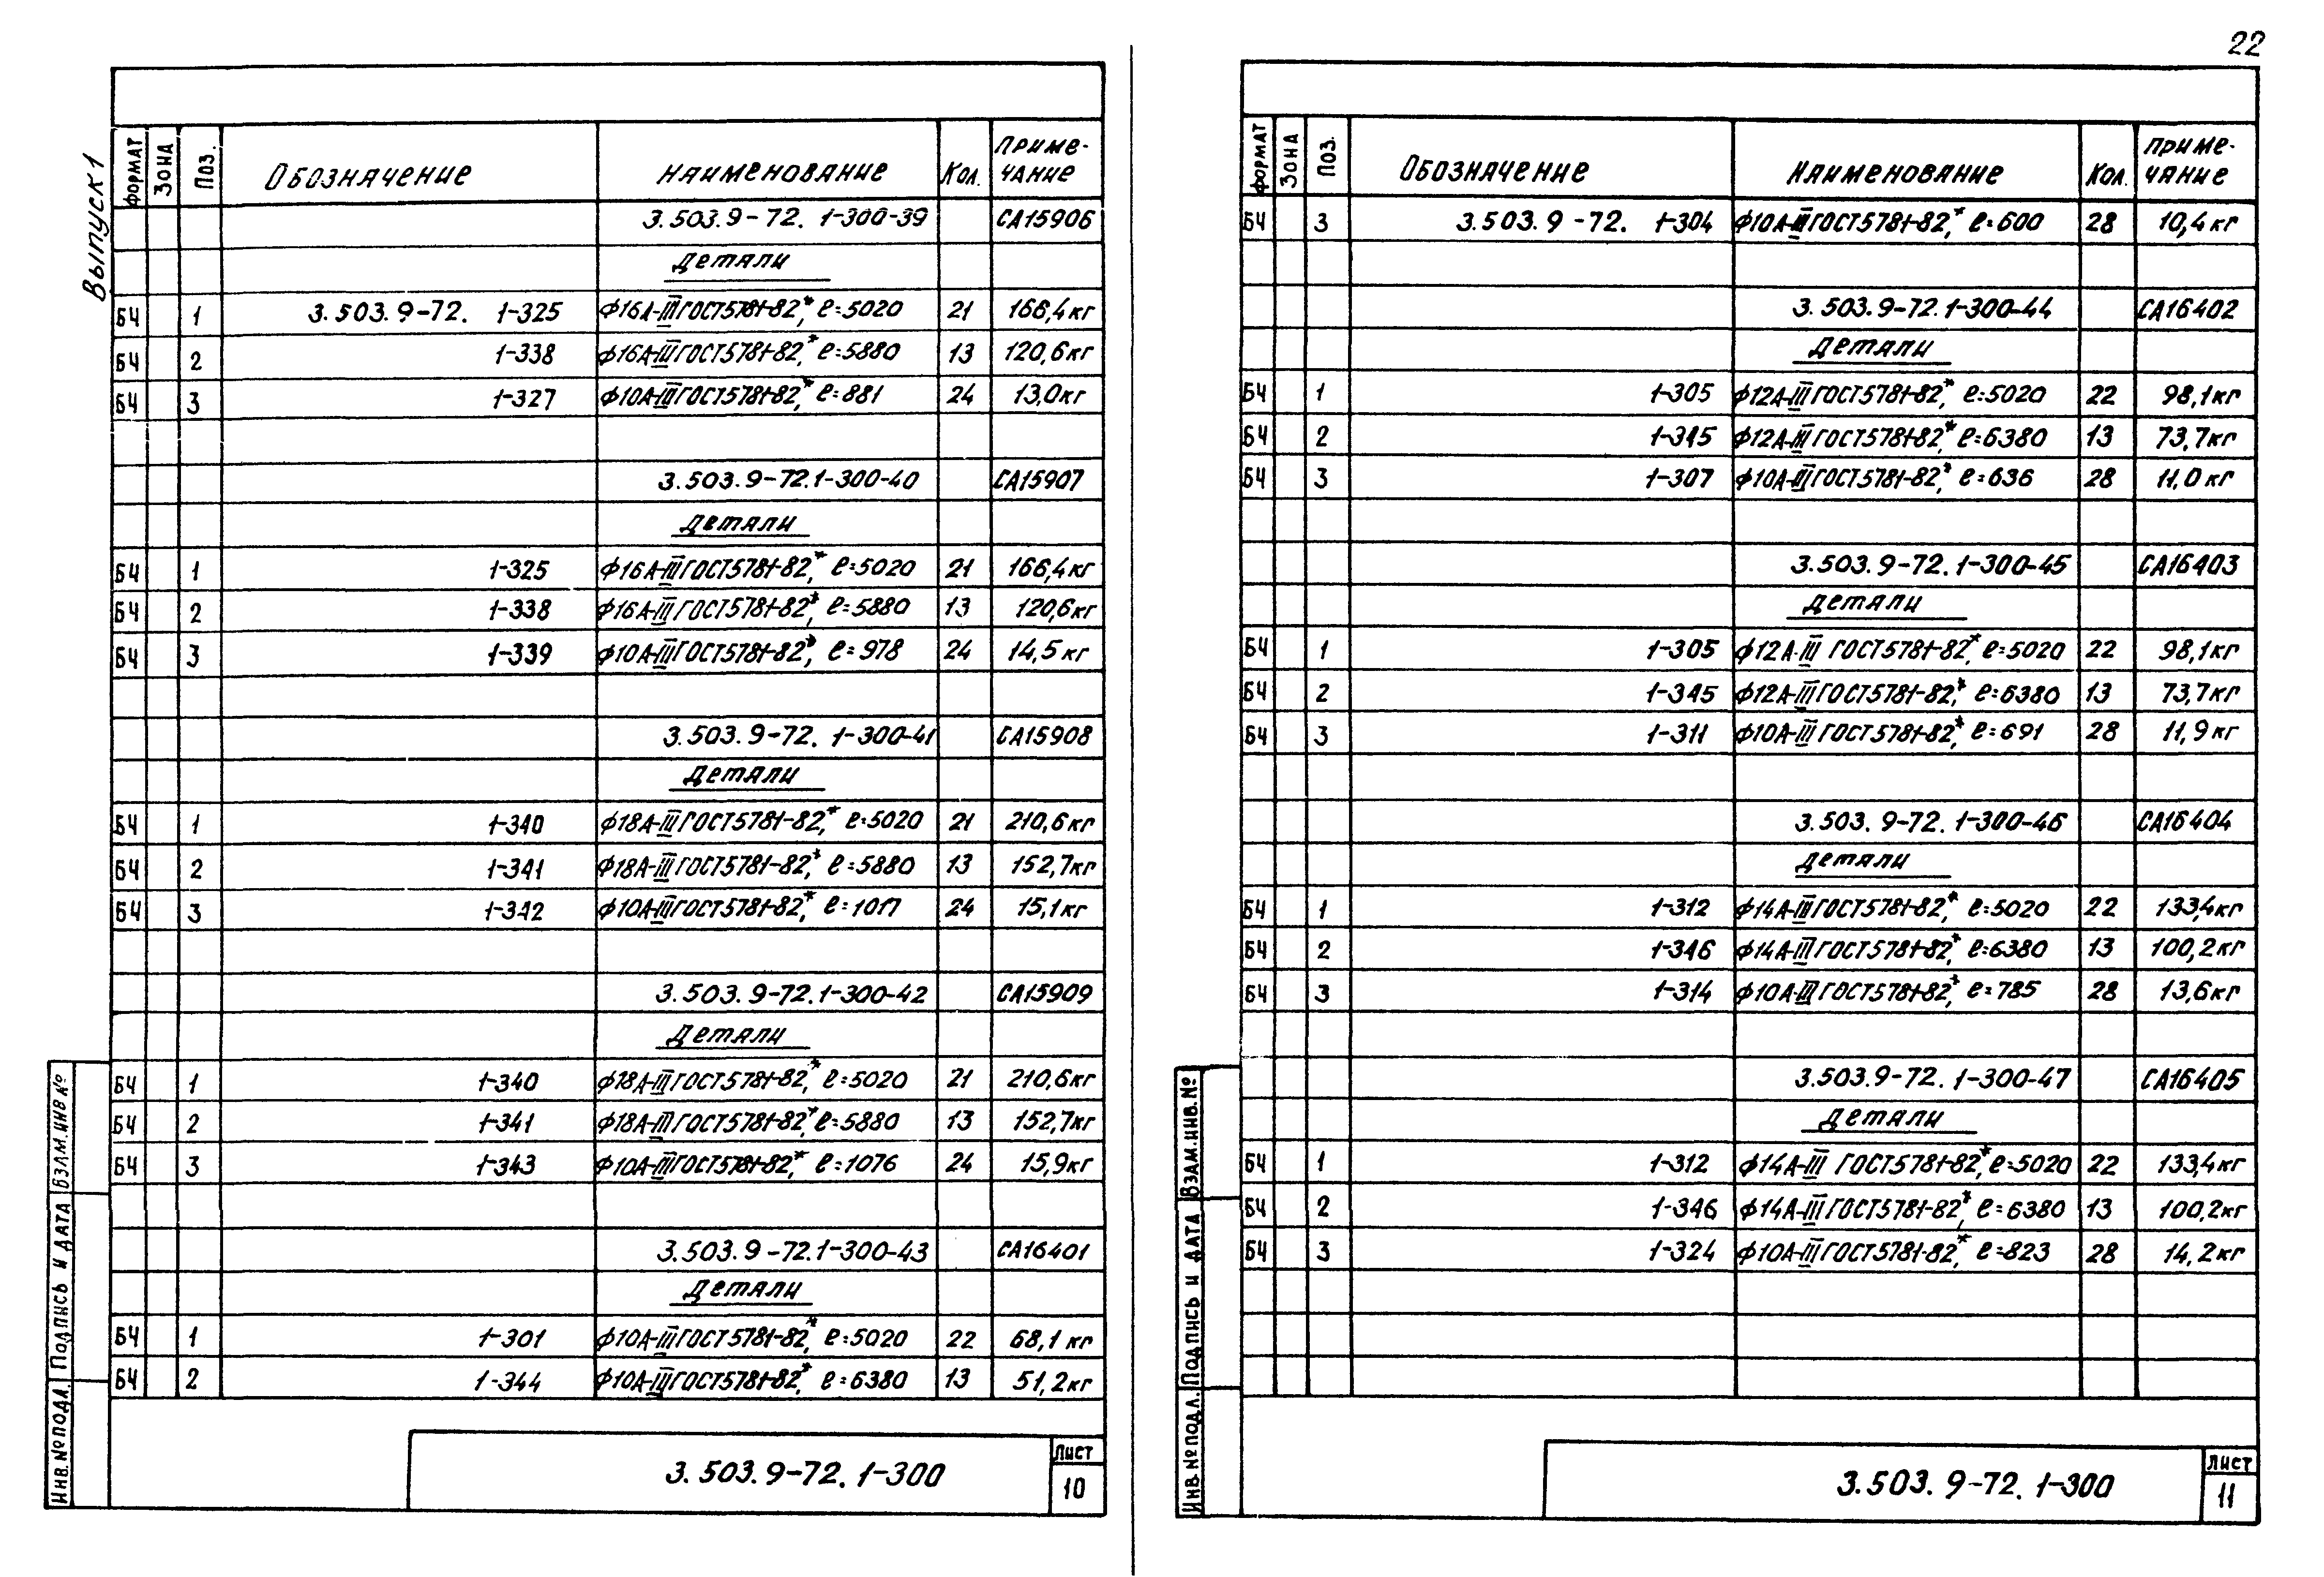 22
Выпуск 1
ФОРМАТ ЗОНА ПОЗ. Обозначение Наименование Кол. Примечание
3.503.9-72. 1-300-39 СА15906
Детали
БЧ 1 3.503.9-72. 1-325 ф16А-III ГОСТ5781-82,* ℓ=5020 21 166,4кг
БЧ 2 1-338 ф16А-III ГОСТ5781-82,* ℓ=5880 13 120,6кг
БЧ 3 1-327 ф10А-III ГОСТ5781-82,* ℓ=881 24 13,0кг
3.503.9-72.1-300-40 СА15907
Детали
БЧ 1 1-325 ф16А-III ГОСТ5781-82,* ℓ=5020 21 166,4кг
БЧ 2 1-338 ф16А-III ГОСТ5781-82,* ℓ=5880 13 120,6кг
БЧ 3 1-339 ф10А-III ГОСТ5781-82,* ℓ=978 24 14,5кг
3.503.9-72. 1-300-41 СА15908
Детали
БЧ 1 1-340 ф18А-III ГОСТ5781-82,* ℓ=5020 21 210,6кг
БЧ 2 1-341 ф18А-III ГОСТ5781-82,* ℓ=5880 13 152,7кг
БЧ 3 1-342 ф10А-III ГОСТ5781-82,* ℓ=1017 24 15,1кг
3.503.9-72.1-300-42 СА15909
Детали
БЧ 1 1-340 ф18А-III ГОСТ5781-82,* ℓ=5020 21 210,6кг
БЧ 2 1-341 ф18А-III ГОСТ5781-82,* ℓ=5880 13 152,7кг
БЧ 3 1-343 ф10А-III ГОСТ5781-82,* ℓ=1076 24 15,9кг
3.503.9-72.1-300-43 СА16401
Детали
БЧ 1 1-301 ф10А-III ГОСТ5781-82,* ℓ=5020 22 68,1кг
БЧ 2 1-344 ф10А-III ГОСТ5781-82,* ℓ=6380 13 51,2кг
Инв.№ подл. Подпись и дата Взам.инв №
3.503.9-72. 1-300
Лист
10
ФОРМАТ ЗОНА ПОЗ. Обозначение Наименование Кол. Примечание
БЧ 3 3.503.9-72. 1-304 ф10А-III ГОСТ5781-82,* ℓ=600 28 10,4кг
3.503.9-72.1-300-44 СА16402
Детали
БЧ 1 1-305 ф12А-III ГОСТ5781-82,* ℓ=5020 22 98,1кг
БЧ 2 1-345 ф12А-III ГОСТ5781-82,* ℓ=6380 13 73,7кг
БЧ 3 1-307 ф10А-III ГОСТ5781-82,* ℓ=636 28 11,0кг
3.503.9-72.1-300-45 СА16403
Детали
БЧ 1 1-305 ф12А-III ГОСТ5781-82,* ℓ=5020 22 98,1кг
БЧ 2 1-345 ф12А-III ГОСТ5781-82,* ℓ=6380 13 73,7кг
БЧ 3 1-311 ф10А-III ГОСТ5781-82,* ℓ=691 28 11,9кг
3.503.9-72. 1-300-46 СА16404
Детали
БЧ 1 1-312 ф14А-III ГОСТ5781-82,* ℓ=5020 22 133,4кг
БЧ 2 1-346 ф14А-III ГОСТ5781-82,* ℓ=6380 13 100,2кг
БЧ 3 1-314 ф10А-III ГОСТ5781-82,* ℓ=785 28 13,6кг
3.503.9-72. 1-300-47 СА16405
Детали
БЧ 1 1-312 ф14А-III ГОСТ5781-82,* ℓ=5020 22 133,4кг
БЧ 2 1-346 ф14А-III ГОСТ5781-82,* ℓ=6380 13 100,2кг
БЧ 3 1-324 ф10А-III ГОСТ5781-82,* ℓ=823 28 14,2кг
Инв.№ подл. Подпись и дата Взам.инв.№
3.503.9-72. 1-300
Лист
11